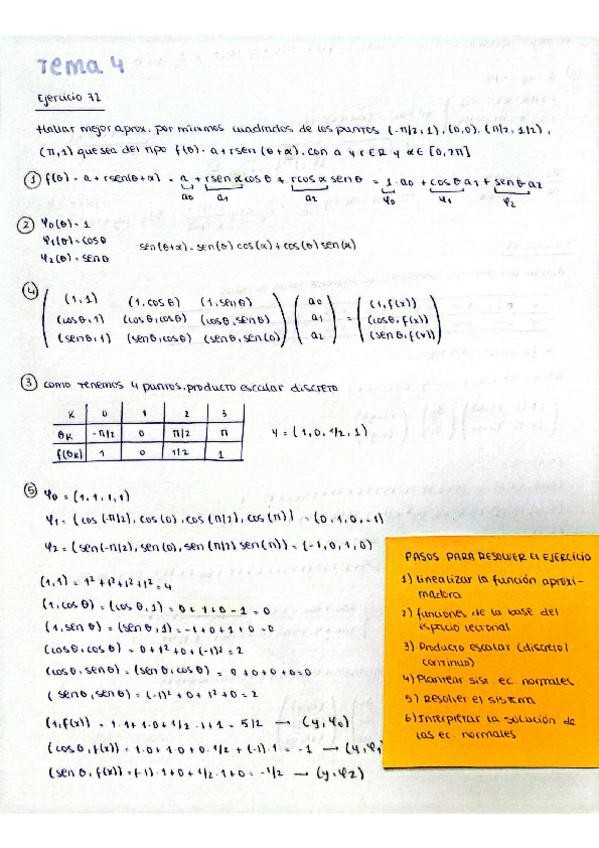 Tema 4
Ejercicio 72
Hallar mejor aprox. por mínimos cuadrados de los puntos (-π/2, 1), (0,0), (π/2, 1/2),
(π, 1) que sea del tipo f(θ) = a + r sen (θ+α), con a y r ∈ R y α ∈ [0, 2π]
① f(θ) = a + r sen(θ+α) = a + r sen α cos θ + r cos α sen θ = 1·a0 + cos θ a1 + sen θ a2
a0 a1 a2 φ0 φ1 φ2
② φ0(θ) = 1
φ1(θ) = cos θ
φ2(θ) = sen θ
sen(θ+α) = sen(θ) cos(α) + cos(θ) sen(α)
④
(1,1) (1, cos θ) (1, sen θ) a0 (1, f(x))
(cos θ, 1) (cos θ, cos θ) (cos θ, sen θ) a1 = (cos θ, f(x))
(sen θ, 1) (sen θ, cos θ) (sen θ, sen(θ) a2 (sen θ, f(x))
③ como tenemos 4 puntos, producto escalar discreto
K 0 1 2 3
θK -π/2 0 π/2 π
f(θK) 1 0 1/2 1
y = (1, 0, 1/2, 1)
⑤ φ0 = (1, 1, 1, 1)
φ1 = (cos (-π/2), cos (0), cos (π/2), cos (π)) = (0, 1, 0, -1)
φ2 = (sen(-π/2), sen (0), sen (π/2) sen (π)) = (-1, 0, 1, 0)
(1,1) = 1² + 1² + 1² + 1² = 4
(1, cos θ) = (cos θ, 1) = 0 + 1 + 0 - 1 = 0
(1, sen θ) = (sen θ, 1) = -1 + 0 + 1 + 0 = 0
(cos θ, cos θ) = 0 + 1² + 0 + (-1)² = 2
(cos θ, sen θ) = (sen θ, cos θ) = 0 + 0 + 0 + 0 = 0
(sen θ, sen θ) = (-1)² + 0 + 1² + 0 = 2
(1, f(x)) = 1·1 + 1·0 + 1/2 · 1 + 1 = 5/2 → (y, φ0)
(cos θ, f(x)) = 1·0 + 1·0 + 0·1/2 + (-1)·1 = -1 → (y, φ1
(sen θ, f(x)) = (-1)·1 + 0 + 1/2 · 1 + 0 = -1/2 → (y, φ2)
PASOS PARA RESOLVER EL EJERCICIO
1) Linealizar la función aproxi-
madora
2) funciones de la base del
espacio vectorial
3) Producto escalar (discreto/
continuo)
4) Plantear sist. ec. normales
5) Resolver el sistema
6) Interpretar la solución de
las ec. normales